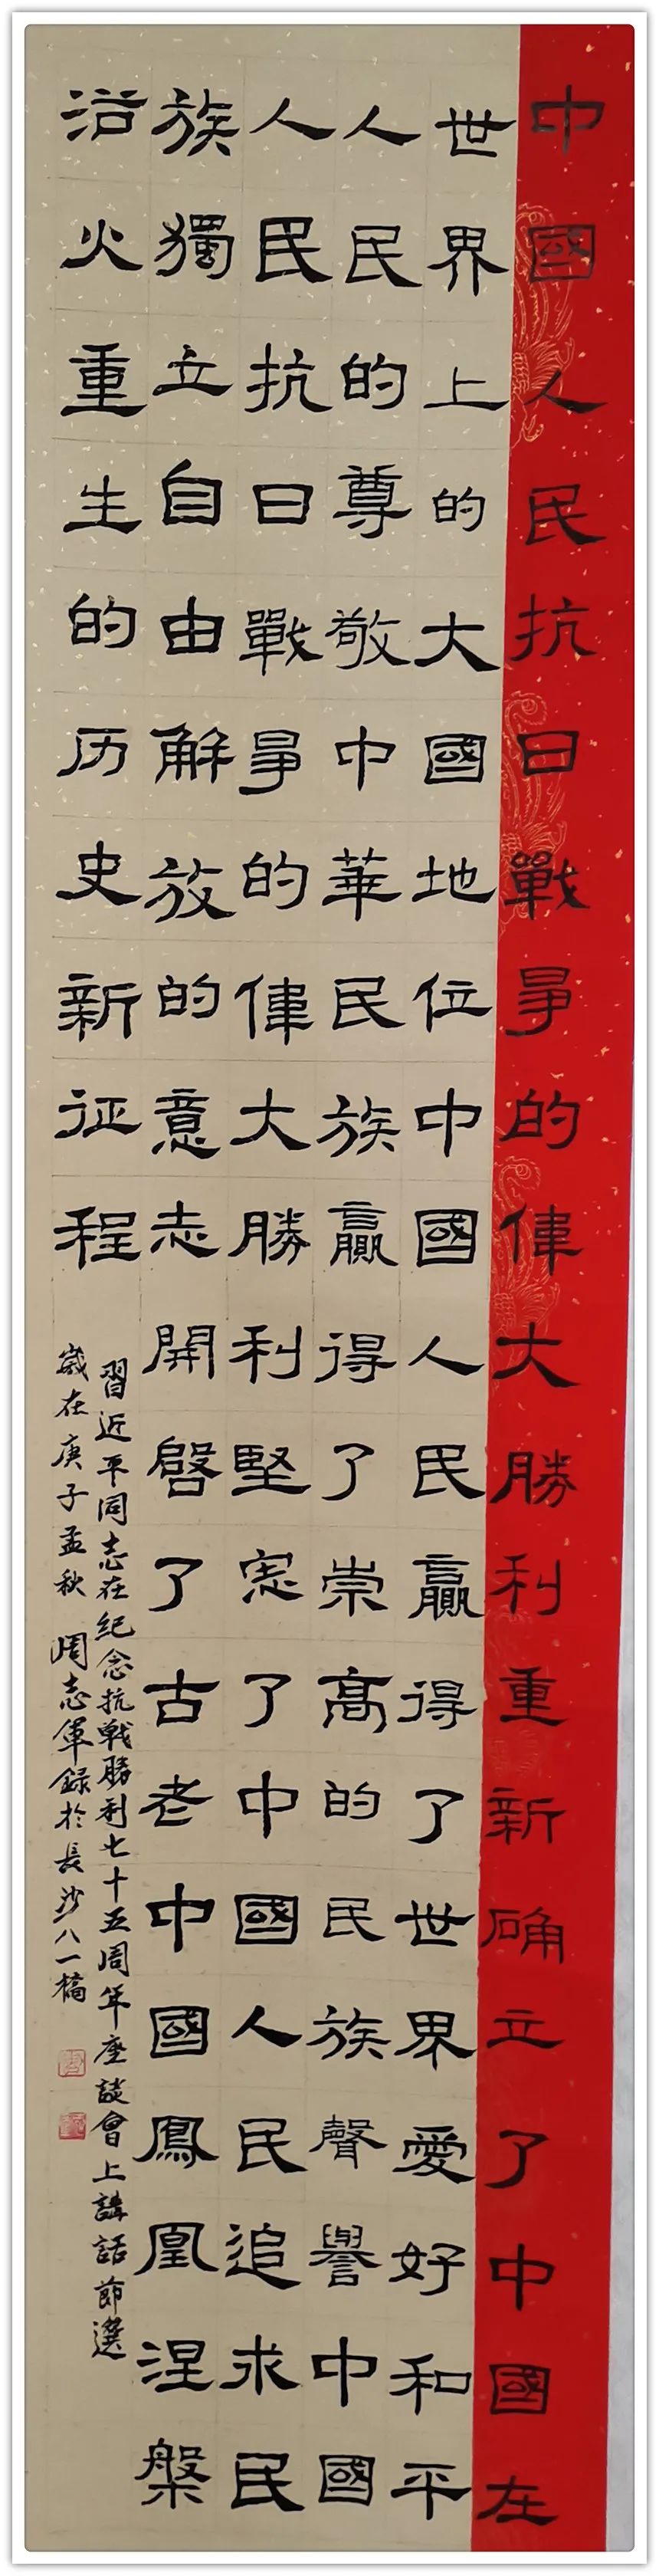 中國人民抗日戰爭的偉大勝利重新确立了中國在
世界上的大國地位中國人民贏得了世界愛好和平
人民的尊敬中華民族贏得了崇高的民族聲譽中國
人民抗日戰爭的偉大勝利堅定了中國人民追求民
族獨立自由解放的意志開啓了古老中國鳳凰涅槃
浴火重生的历史新征程
習近平同志在紀念抗戰勝利七十五周年座談會上講話節選
歲在庚子孟秋 周志軍錄於長沙八一橋